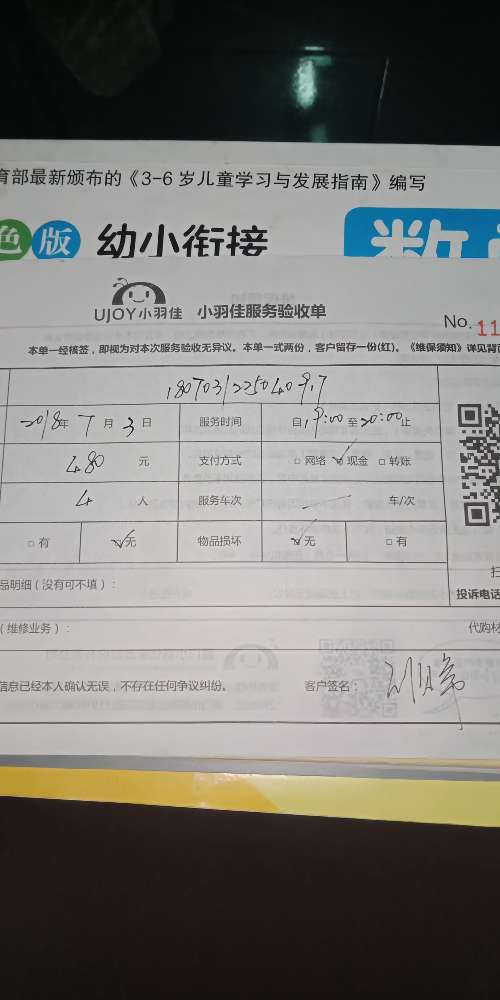 育部最新颁布的《3-6岁儿童学习与发展指南》编写
色版 幼小衔接 数
UJOY小羽佳 小羽佳服务验收单
No. 11
本单一经核签,即视为对本次服务验收无异议。本单一式两份,客户留存一份(红)。《维保须知》详见背面
2018年7月3日 服务时间 自19:00至20:00止
480元 支付方式 □网络 ☑现金 □转账
4人 服务车次 — 车/次
□有 ☑无 物品损坏 ☑无 □有
品明细(没有可不填):
投诉电话
(维修业务): 代购材
信息已经本人确认无误,不存在任何争议纠纷。 客户签名: